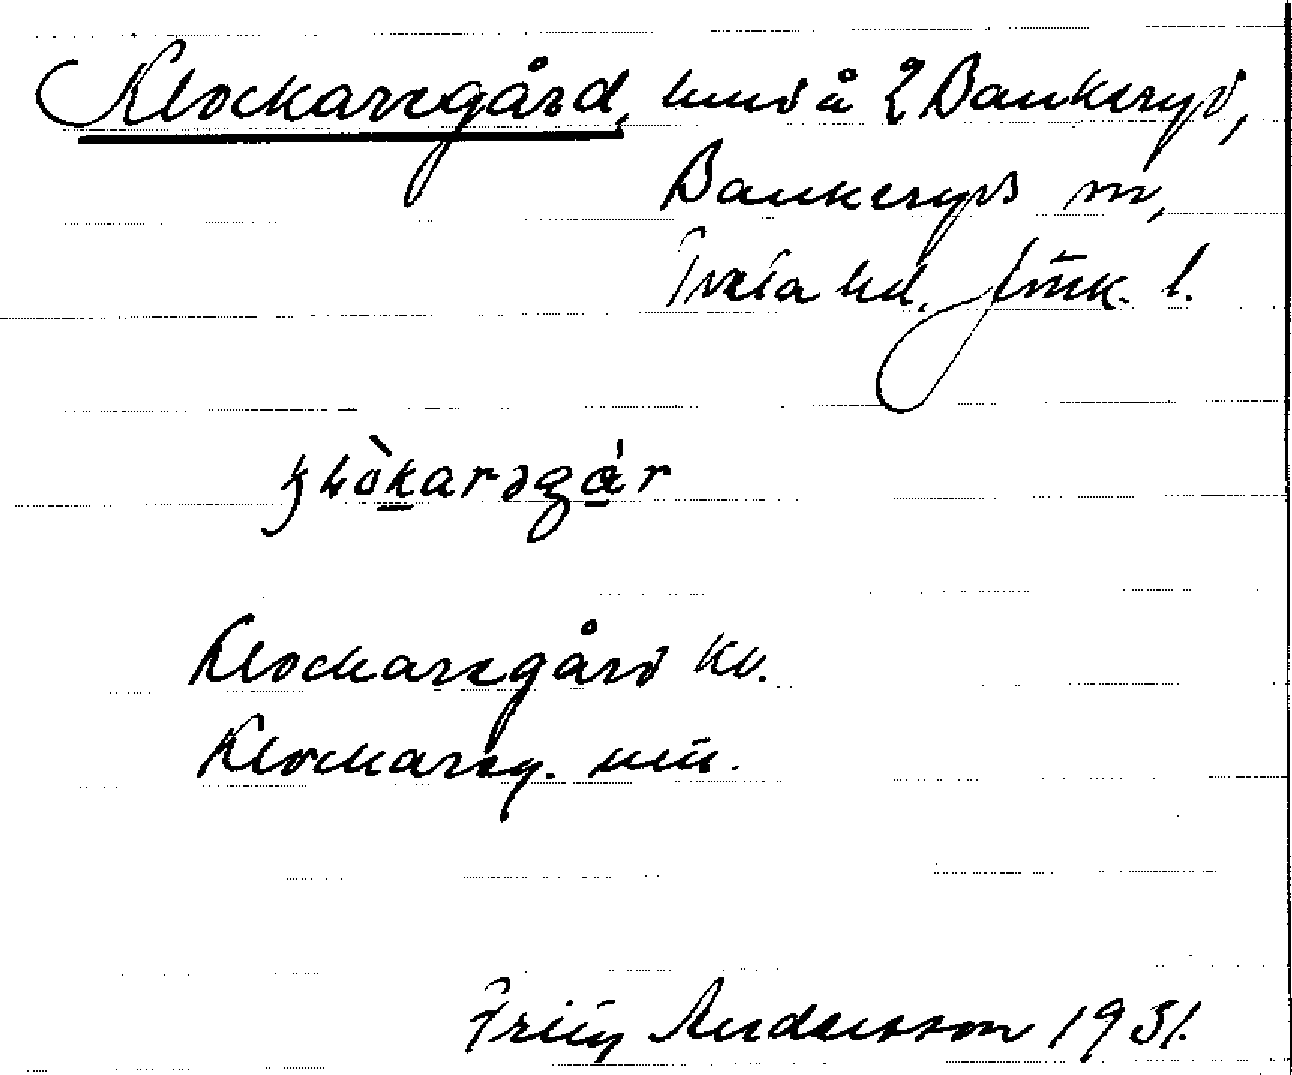 Klockaregård, hmd å 2 Bankeryd,
Bankeryds sn,
Tveta hd, Jönk. l.
Klockaregård kv.
Klockareg. mtl.
Fritz Andersson 1931.